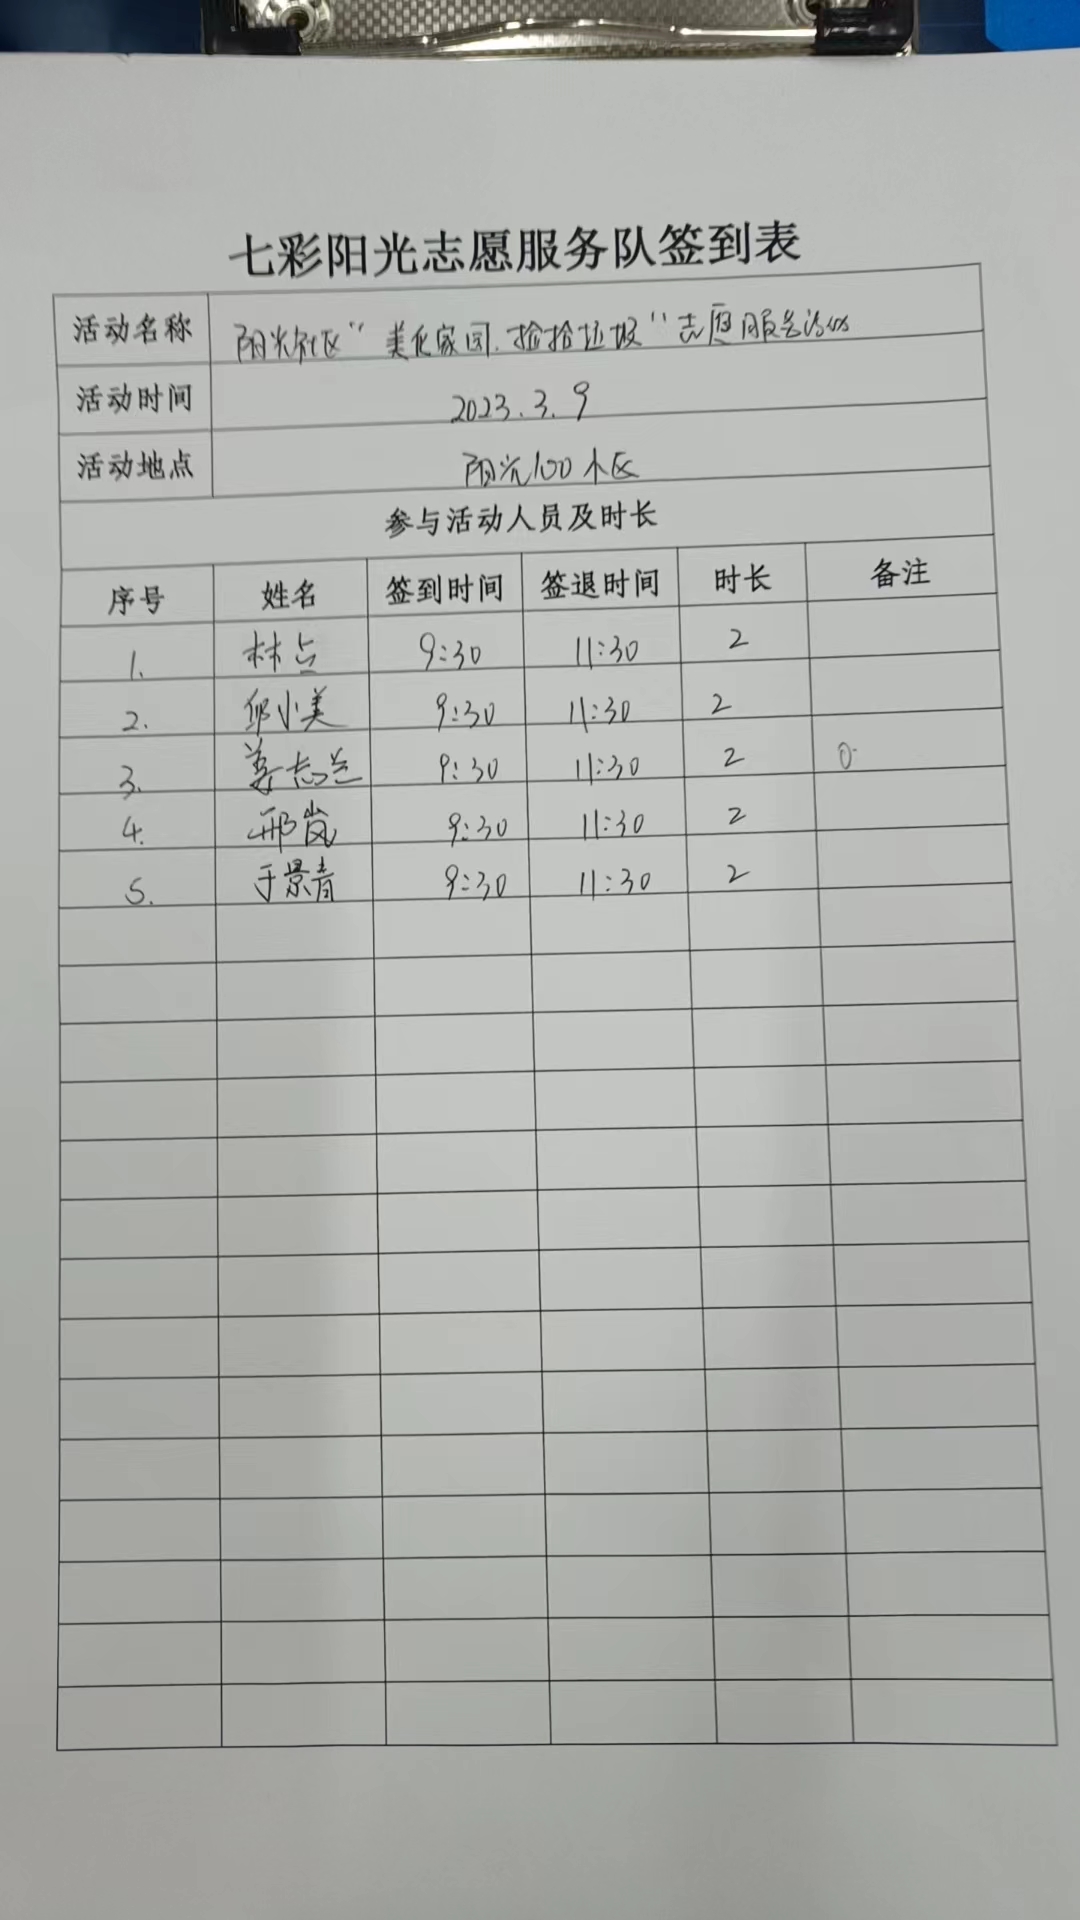 七彩阳光志愿服务队签到表
活动名称 阳光社区“美化家园.捡拾垃圾”志愿服务活动
活动时间 2023.3.9
活动地点 阳光100小区
参与活动人员及时长
序号 姓名 签到时间 签退时间 时长 备注
1. 林点 9:30 11:30 2
2. 邱小美 9:30 11:30 2
3. 姜志兰 9:30 11:30 2
4. 邢岚 9:30 11:30 2
5. 于景青 9:30 11:30 2